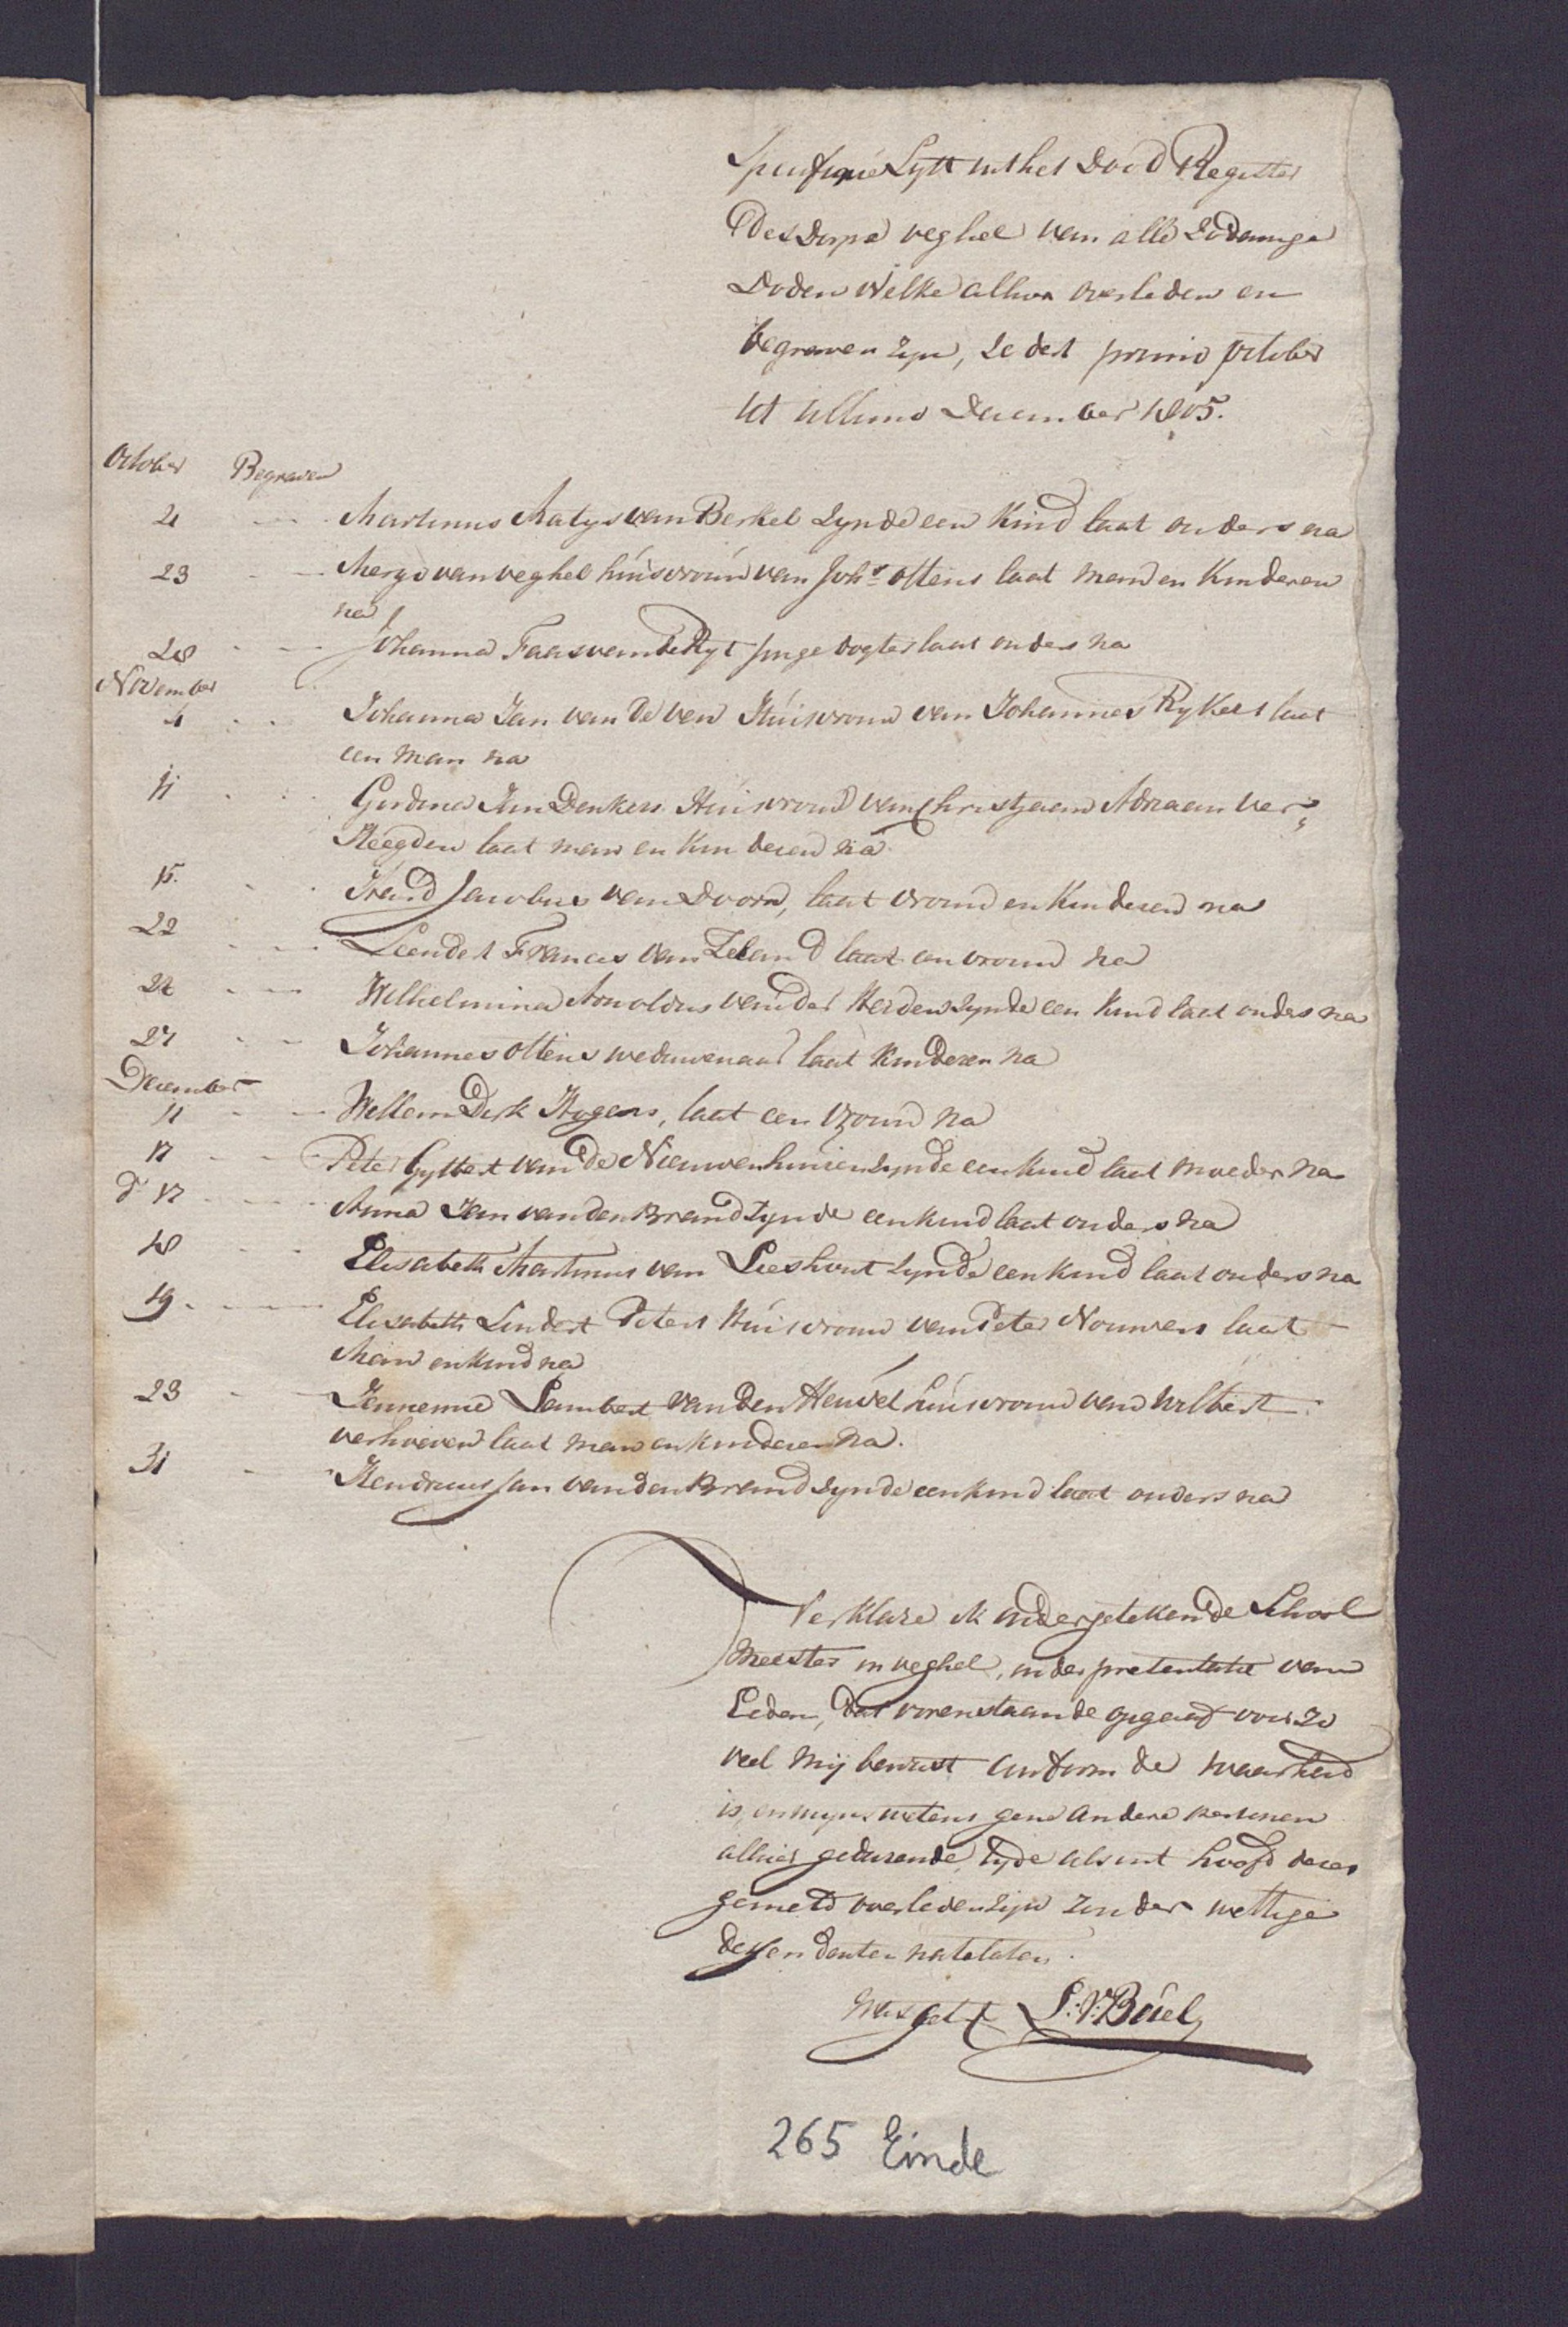 Specifique Lyst uit het Dood Register
Des Dorps veghel van alle Zodanige
Doden Welke alhier overleden en
begraven zyn, Zedert primo October
tot ultimo December 1805.
October Begraven
21 Martinus Matys van Berkel Zynde een Kind laat ouders na
23 Merge van veghel huisvrouw van Johs Ottens laat man en Kinderen
na
28 Johanna Faas van de Ryt Jonge dogter laat ouders na
November
4 Johanna Jan van de ven Huisvrouw van Johannes Rykers laat
een Man na
11 Gerdina Jan Donkers Huisvrouw van Christjaan Adriaan Ver=
Steegden laat man en kinderen na
15 Jacobus van Doorn, laat vrouw en Kinderen na
22 Leendert Francis van Zeland laat een vrouw na
24 Wilhelmina Arnoldus van der Heiden Zynde een Kind laat ouders na
27 Johannes Ottens weduwenaar laat Kinderen na
December
11 Willem Dirk laat een vrouw na
17 Peter Gysbert van de Nieuwenhuisen Zynde een kind laat moeder na
do 17 Anna Jan van den Brand Zynde een kind laat ouders na
18 Elisabeth Martinus van Lieshout Zynde een kind laat ouders na
19 Elisabeth Lendert Peters Huisvrouw van Peter Nouwens laat
Man en kind na
23 Jennemie Lambert van den Heuvel huisvrouw van Wilbert
verhoeven laat man en kinderen na.
31 Hendricus Jan van den Brand Zynde een kind laat ouders na
Verklare ik ondergetekende School
Meester in veghel, onder pretentatie van
Eeden, dat vorenstaande opgaaf voor zo
veel Mij bewust conform de waarheid
is, en myns wetens gene andere personen
alhier gedurende tyde als int hoofd dezer
gemeld overleden zyn zonder wettige
dessendenten natelaten.
Was get. L: V: Büel
265 Einde